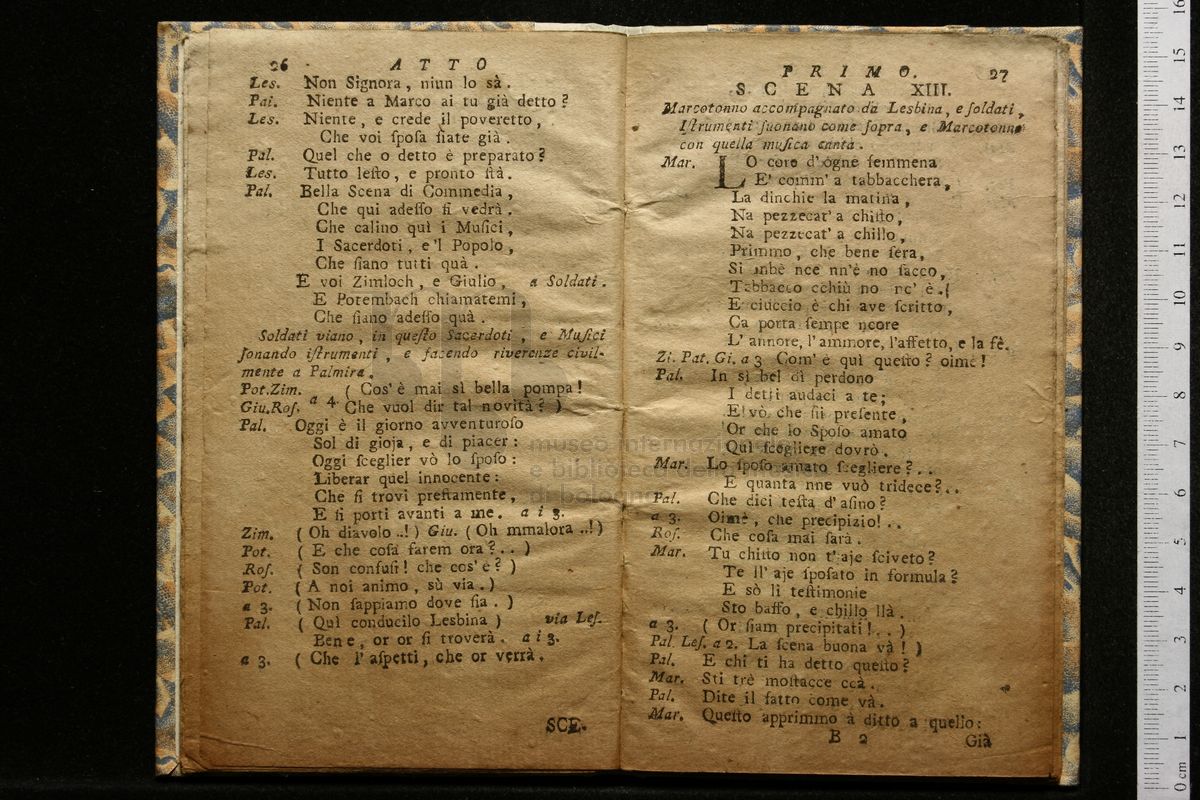 26 ATTO
Les. Non Signora, niun lo sà.
Pal. Niente a Marco ai tu già detto?
Les. Niente, e crede il poveretto,
Che voi ſpoſa ſiate già.
Pal. Quel che o detto è preparato?
Les. Tutto leſto, e pronto ſtà.
Pal. Bella Scena di Commedia,
Che qui adeſſo ſi vedrà.
Che calino quì i Muſici,
I Sacerdoti, e'l Popolo,
Che ſiano tutti quà.
E voi Zimloch, e Giulio, a Soldati.
E Potembach chiamatemi,
Che ſiano adeſſo quà.
Soldati viano, in queſto Sacerdoti, e Muſici
ſonando iſtrumenti, e facendo riverenze civil-
mente a Palmira.
Pot.Zim. ( Cos'è mai sì bella pompa!
Giu.Roſ. a 4 Che vuol dir tal novità? )
Pal. Oggi è il giorno avventuroſo
Sol di gioja, e di piacer:
Oggi ſceglier vò lo ſpoſo:
Liberar quel innocente:
Che ſi trovi preſtamente,
E ſi porti avanti a me. a i 3.
Zim. ( Oh diavolo ..! ) Giu. ( Oh mmalora ..! )
Pot. ( E che coſa farem ora?.. )
Roſ. ( Son confuſi! che cos'è? )
Pot. ( A noi animo, sù via. )
a 3. ( Non ſappiamo dove ſia. )
Pal. ( Quì conducilo Lesbina ) via Leſ.
Bene, or or ſi troverà. a i 3.
a 3. ( Che l'aſpetti, che or verrà.
SCE.
PRIMO. 27
SCENA XIII.
Marcotonno accompagnato da Lesbina, e ſoldati,
Iſtrumenti ſuonano come ſopra, e Marcotonno
con quella muſica canta.
Mar. LO core d'ogne femmena
E' comm' a tabbacchera,
La dinchie la matina,
Na pezzecat' a chiſto,
Na pezzecat' a chillo,
Primmo, che bene ſera,
Si mbè nce nn'è no ſacco,
Tabbacco cchiù no nc' è.
E ciuccio è chi ave ſcritto,
Ca porta ſempe ncore
L' annore, l'ammore, l'affetto, e la fè.
Zi. Pat. Gi. a 3 Com' è quì queſto? oimè!
Pal. In sì bel dì perdono
I detti audaci a te;
E vò che ſii preſente,
Or che lo Spoſo amato
Quì ſcegliere dovrò.
Mar. Lo ſpoſo amato ſcegliere?..
E quanta nne vuò tridece?..
Pal. Che dici teſta d'aſino?
a 3. Oimè, che precipizio!..
Roſ. Che coſa mai ſarà.
Mar. Tu chiſto non t'aje ſciveto?
Te ll' aje ſpoſato in formula?
E sò li teſtimonie
Sto baffo, e chillo llà.
a 3. ( Or ſiam precipitati!.. )
Pal. Leſ. a 2. La ſcena buona và! )
Pal. E chi ti ha detto queſto?
Mar. Sti trè moſtacce ccà.
Pal. Dite il fatto come và.
Mar. Queſto apprimmo à ditto a quello:
B 2 Già
museo internazionale
e biblioteca della musica
di bologna
0 cm 1 2 3 4 5 6 7 8 9 10 11 12 13 14 15 16